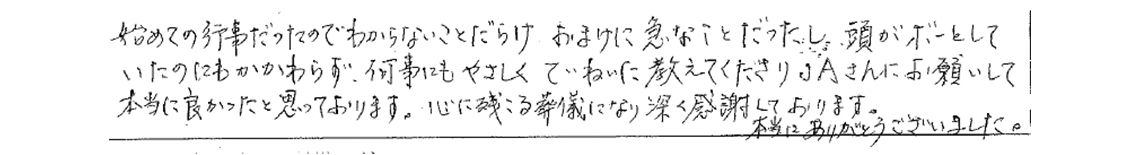 始めての行事だったのでわからないことだらけ おまけに急なことだったし、頭がボーとして
いたのにもかかわらず、何事にもやさしく ていねいに教えてくださりJAさんにお願いして
本当に良かったと思っております。心に残こる葬儀になり深く感謝しております。
本当にありがとうございました。